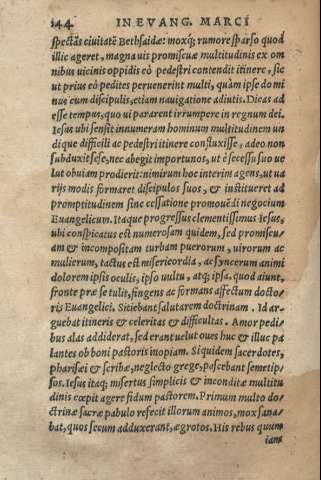 244 IN EVANG. MARCI
spectãs ciuitatẽ Bethsaidæ: moxq́; rumore sparso quod
illic ageret, magna uis promiscuæ multitudinis ex om
nibus uicinis oppidis eò pedestri contendit itinere, sic
ut prius eò pedites peruenerint multi, quàm ipse do mi
nus cum discipulis, etiam nauigatione adiutis. Dicas ad
esse tempus, quo ui parent irrumpere in regnum dei.
Iesus ubi sensit innumeram hominum multitudinem un
dique difficili ac pedestri itinere confluxisse, adeo non
subduxit sese, nec abegit importunos, ut è secessu suo ue
lut obuiam prodierit: nimirum hoc interim agens, ut ua
rijs modis formaret discipulos suos, & institueret ad
promptitudinem sine cessatione promouẽdi negocium
Euangelicum. Itaque progressus clementissimus Iesus,
ubi conspicatus est numerosam quidem, sed promiscu-
am & incompositam turbam puerorum, uirorum ac
mulierum, tactus est misericordia, ac syncerum animi
dolorem ipsis oculis, ipso uultu, atq; ipsa, quod aiunt,
fronte præ se tulit, fingens ac formans affectum docto-
ris Euangelici. Sitiebant salutarem doctrinam. Id ar-
guebat itineris & celeritas & difficultas. Amor pedi-
bus alas addiderat, sed erant uelut oues huc & illuc pa
lantes ob boni pastoris inopiam. Siquidem sacerdotes,
pharisæi & scribæ, neglecto grege, pascebant semetip-
sos. Iesus itaq; misertus simplicis & inconditæ multitu
dinis cœpit agere fidum pastorem. Primum multo do-
ctrinæ sacræ pabulo refecit illorum animos, mox sana-
bat, quos secum adduxerant, ægrotos. His rebus quum
iam